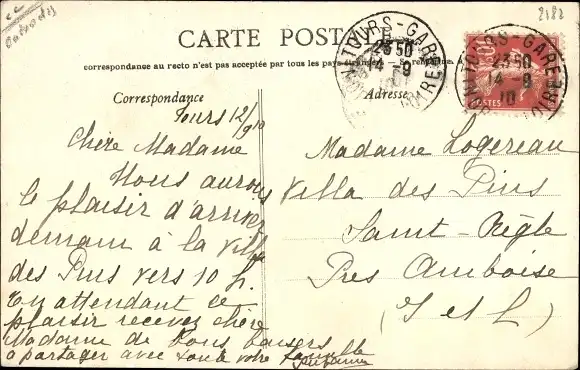 2182
CARTE POSTALE
correspondance au recto n'est pas acceptée par tous les pays étrangers
Correspondance
Adresse
TOURS-GARE
23 50
14 -9
10
INDRE ET LOIRE
POSTES
10
Tours 12/9/10
Chère Madame
Nous aurons
le plaisir d'arriver
demain à la villa
des Pins vers 10 h.
En attendant ce
plaisir recevez chère
Madame de bons baisers
a partager avec toute votre famille
Suzanne
Madame Logereau
Villa des Pins
Saint-Règle
Près Amboise
(I et L)